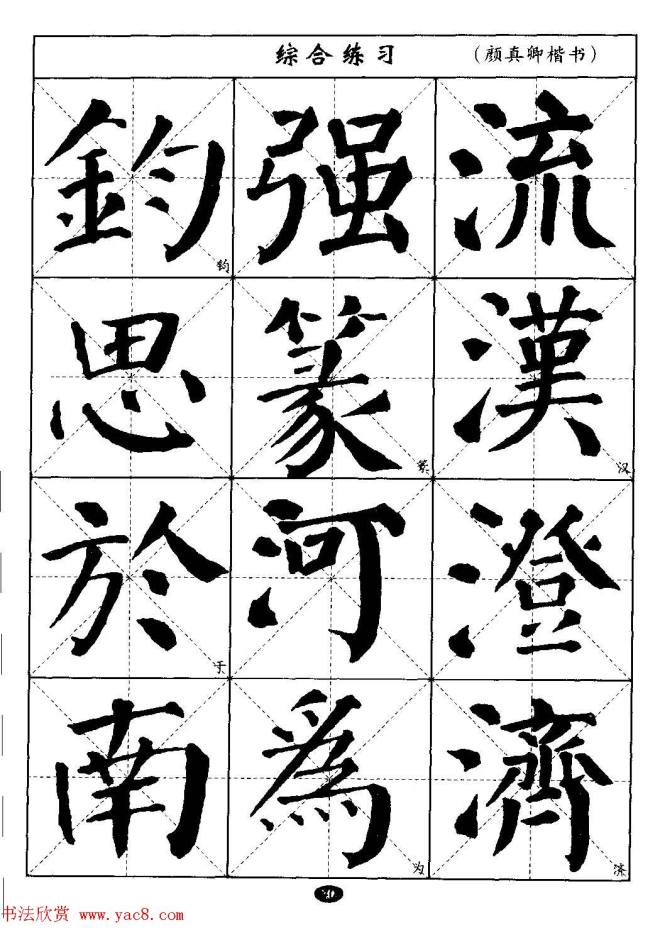 综合练习 （颜真卿楷书）
流漢汉澄濟济
强篆篆河爲为
鈞钧思於于南
书法欣赏 www.yac8.com